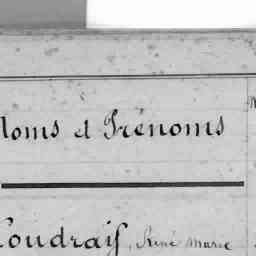 Noms et Prénoms
Coudrais, René Marie